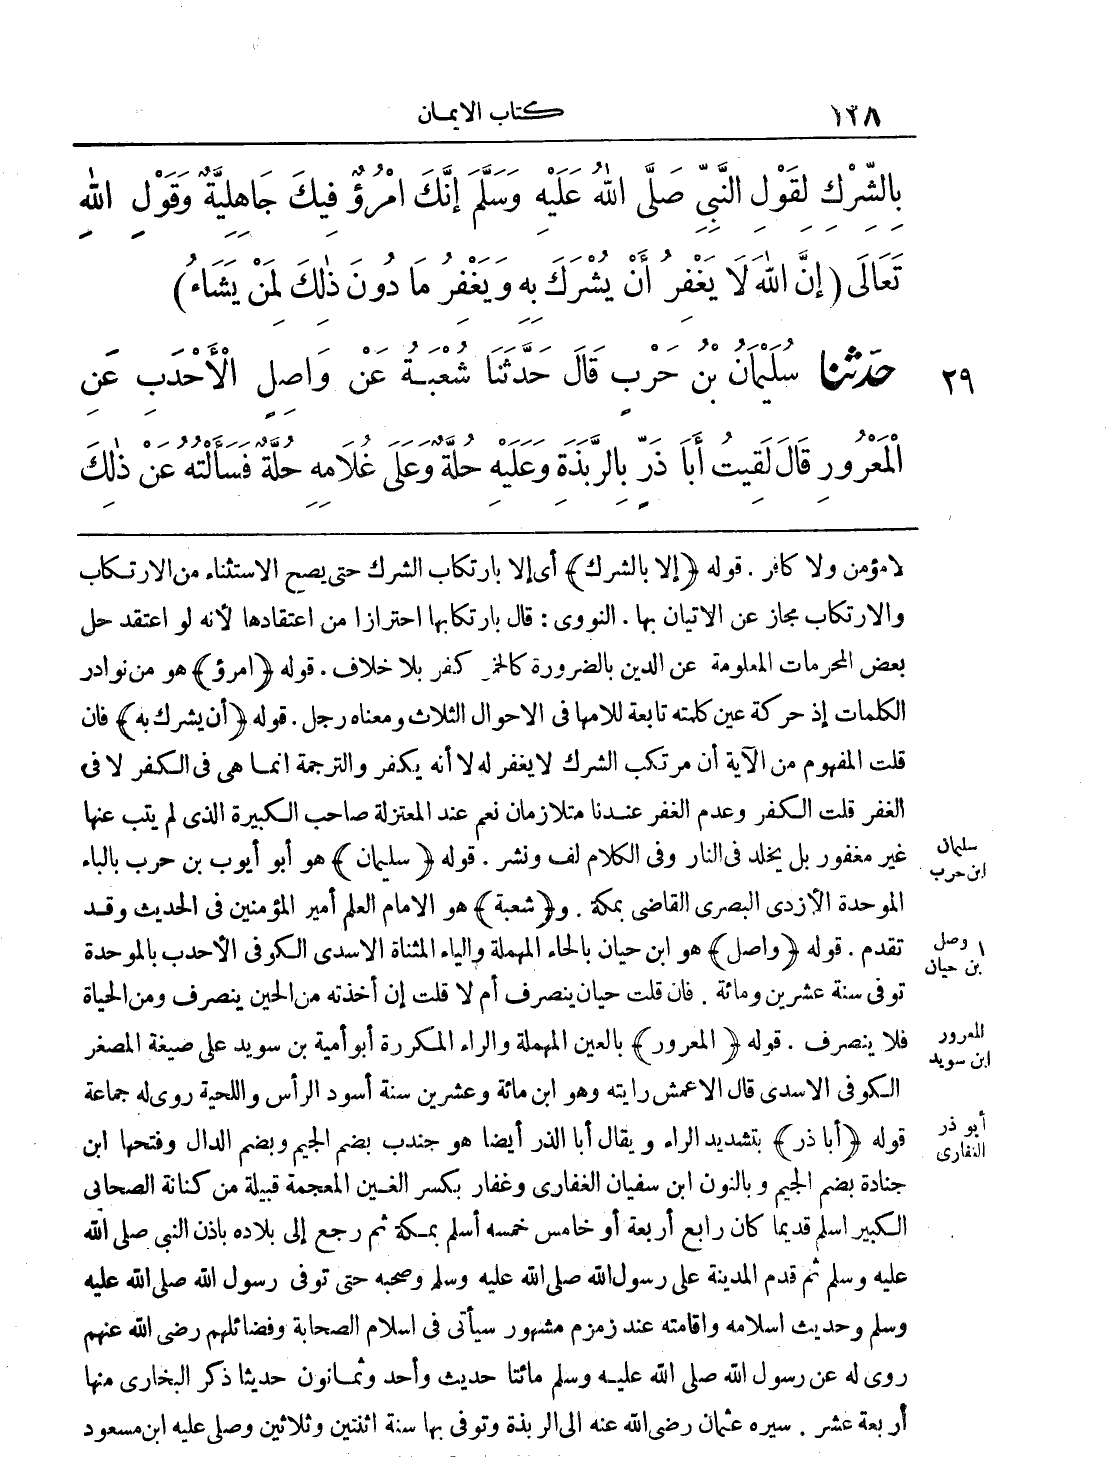 ١٣٨
كتاب الايمان
بِالشِّرْكِ لِقَوْلِ النَّبِيِّ صَلَّى اللهُ عَلَيْهِ وَسَلَّمَ إِنَّكَ امْرُؤٌ فِيكَ جَاهِلِيَّةٌ وَقَوْلِ اللهِ
تَعَالَى (إِنَّ اللهَ لَا يَغْفِرُ أَنْ يُشْرَكَ بِهِ وَيَغْفِرُ مَا دُونَ ذٰلِكَ لِمَنْ يَشَاءُ)
٢٩ حَدَّثَنَا سُلَيْمَانُ بْنُ حَرْبٍ قَالَ حَدَّثَنَا شُعْبَةُ عَنْ وَاصِلٍ الْأَحْدَبِ عَنِ
الْمَعْرُورِ قَالَ لَقِيتُ أَبَا ذَرٍّ بِالرَّبَذَةِ وَعَلَيْهِ حُلَّةٌ وَعَلَى غُلَامِهِ حُلَّةٌ فَسَأَلْتُهُ عَنْ ذٰلِكَ
لامؤمن ولا كافر . قوله ﴿إلا بالشرك﴾ أى إلا بارتكاب الشرك حتى يصح الاستثناء من الارتكاب
والارتكاب مجاز عن الاتيان بها . النووى : قال بارتكابها احترازا من اعتقادها لأنه لو اعتقد حل
بعض المحرمات المعلومة عن الدين بالضرورة كالخمر كفر بلا خلاف . قوله ﴿امرؤ﴾ هو من نوادر
الكلمات إذ حركة عين كلمته تابعة للامها فى الاحوال الثلاث ومعناه رجل . قوله ﴿أن يشرك به﴾ فان
قلت المفهوم من الآية أن مرتكب الشرك لايغفر له لا أنه يكفر والترجمة انما هى فى الكفر لا فى
الغفر قلت الكفر وعدم الغفر عندنا متلازمان نعم عند المعتزلة صاحب الكبيرة الذى لم يتب عنها
غير مغفور بل يخلد فى النار وفى الكلام لف ونشر . قوله ﴿سليمان﴾ هو أبو أيوب بن حرب بالباء
سليمان
ابن حرب
الموحدة الأزدى البصرى القاضى بمكة . و﴿شعبة﴾ هو الامام العلم أمير المؤمنين فى الحديث وقد
تقدم . قوله ﴿واصل﴾ هو ابن حيان بالحاء المهملة والياء المثناة الاسدى الكوفى الأحدب بالموحدة
وصل
بن حيان
توفى سنة عشرين ومائة . فان قلت حيان ينصرف أم لا قلت إن أخذته من الحين ينصرف ومن الحياة
فلا ينصرف . قوله ﴿المعرور﴾ بالعين المهملة والراء المكررة أبو أمية بن سويد على صيغة المصغر
المعرور
ابن سويد
الكوفى الاسدى قال الاعمش رايته وهو ابن مائة وعشرين سنة أسود الرأس واللحية روى له جماعة
قوله ﴿أبا ذر﴾ بتشديد الراء ويقال أبا الذر أيضا هو جندب بضم الجيم وبضم الدال وفتحها ابن
أبو ذر
الغفارى
جنادة بضم الجيم وبالنون ابن سفيان الغفارى وغفار بكسر الغين المعجمة قبيلة من كنانة الصحابى
الكبير اسلم قديما كان رابع أربعة أو خامس خمسه أسلم بمكة ثم رجع إلى بلاده باذن النبى صلى الله
عليه وسلم ثم قدم المدينة على رسول الله صلى الله عليه وسلم وصحبه حتى توفى رسول الله صلى الله عليه
وسلم وحديث اسلامه واقامته عند زمزم مشهور سيأتى فى اسلام الصحابة وفضائلهم رضى الله عنهم
روى له عن رسول الله صلى الله عليه وسلم مائتا حديث وأحد وثمانون حديثا ذكر البخارى منها
أربعة عشر . سيره عثمان رضى الله عنه الى الربذة وتوفى بها سنة اثنتين وثلاثين وصلى عليه ابن مسعود